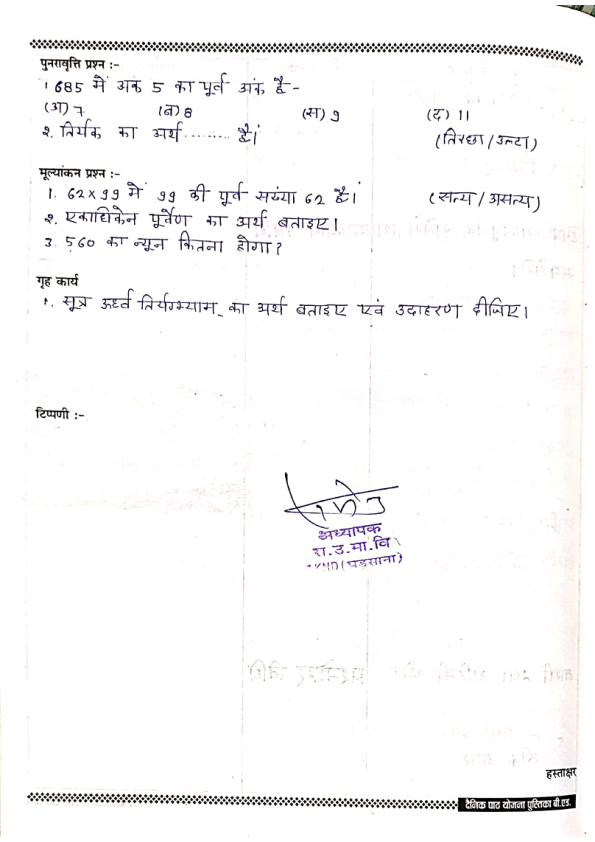 पुनरावृत्ति प्रश्न :-
1 685 में अंक 5 का पूर्व अंक है -
(अ) 7 (ब) 8 (स) 9 (द) 11
२. तिर्यक का अर्थ ......... है। (तिरछा / उल्टा)
मूल्यांकन प्रश्न :-
1. 62 x 99 में 99 की पूर्व सख्या 62 है। (सत्य / असत्य)
२. एकाधिकेन पूर्वेण का अर्थ बताइए।
3. 560 का न्यून कितना होगा?
गृह कार्य
1. सूत्र ऊर्ध्व तिर्यग्भ्याम् का अर्थ बताइए एवं उदाहरण दीजिए।
टिप्पणी :-
अध्यापक
रा.उ.मा.वि
(घड़साना)
हस्ताक्षर
दैनिक पाठ योजना पुस्तिका बी.एड.